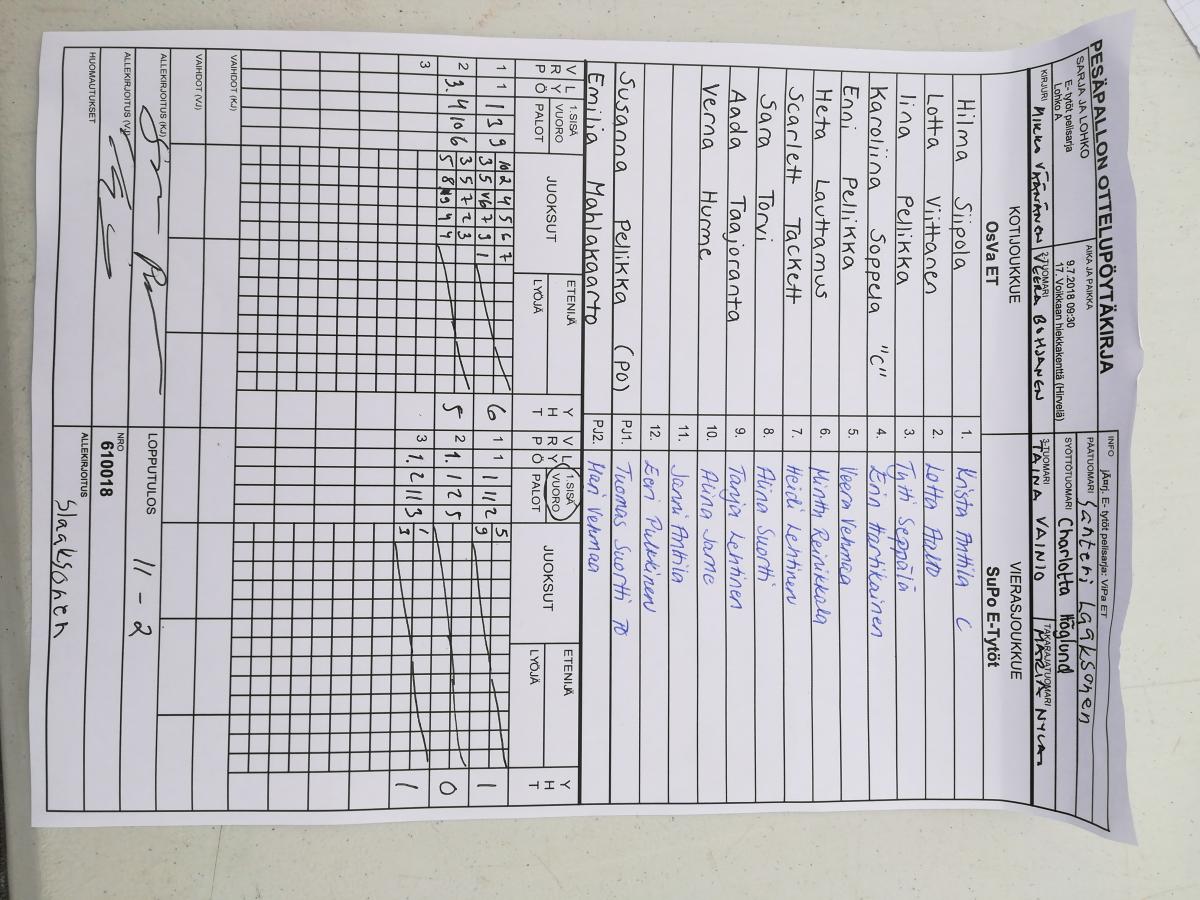 PESÄPALLON OTTELUPÖYTÄKIRJA
INFO jÄ¤rj. E- tytöt pelisarja: ViPa ET
SARJA JA LOHKO
E- tytöt pelisarja
Lohko A
AIKA JA PAIKKA
9.7.2018 09:30
17. Voikkaan hiekkakenttä (Hirvelä)
PÄÄTUOMARI Santeri Laaksonen
SYÖTTÖTUOMARI Charlotta Höglund
KIRJURI Mikko Väänänen
2-TUOMARI Veera Bohjanen
3-TUOMARI TAINA VAINIO
TAKARAJATUOMARI
KOTIJOUKKUE VIERASJOUKKUE
OsVa ET SuPo E-Tytöt
Hilma Siipola 1. Krista Anttila C
Lotta Viittanen 2. Lotta Aalto
Iina Pellikka 3. Tytti Seppälä
Karoliina Soppela "C" 4. Erin Hartikainen
Enni Pellikka 5. Veera Vehmaa
Heta Lauttamus 6. Minttu Reinikkala
Scarlett Tackett 7. Heidi Lehtinen
Sara Torvi 8. Alina Suortti
Aada Taajoranta 9. Tanja Lehtinen
Verna Hurme 10. Alina Jarne
11. Janni Anttila
12. Eeri Pulkkinen
Susanna Pellikka (PO) PJ1. Tuomas Suortti
Emilia Mahlakaarto PJ2. Meri Vehmaa
V R P L Y Ö 1.SISÄ VUORO PALOT JUOKSUT ETENIJÄ LYÖJÄ Y H T V R P L Y Ö 1.SISÄ VUORO PALOT JUOKSUT ETENIJÄ LYÖJÄ Y H T
1 1 1 3 9 10 2 4 5 6 7 6 1 1 1 11 12 5 1
3 5 6 7 9 1 9
2 3. 4 10 6 3 5 7 2 3 5 2 1. 1 2 5 0
5 8 9 4 4
3 3 1. 2 11 3 1 1
3
VAIHDOT (KJ)
VAIHDOT (VJ)
ALLEKIRJOITUS (KJ)
LOPPUTULOS 11 - 2
ALLEKIRJOITUS (VJ)
NRO
610018
HUOMAUTUKSET
ALLEKIRJOITUS
SLaaksonen